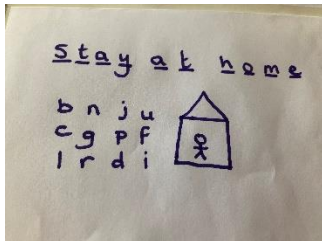 stay at home
b n j u
c g p f
l r d i